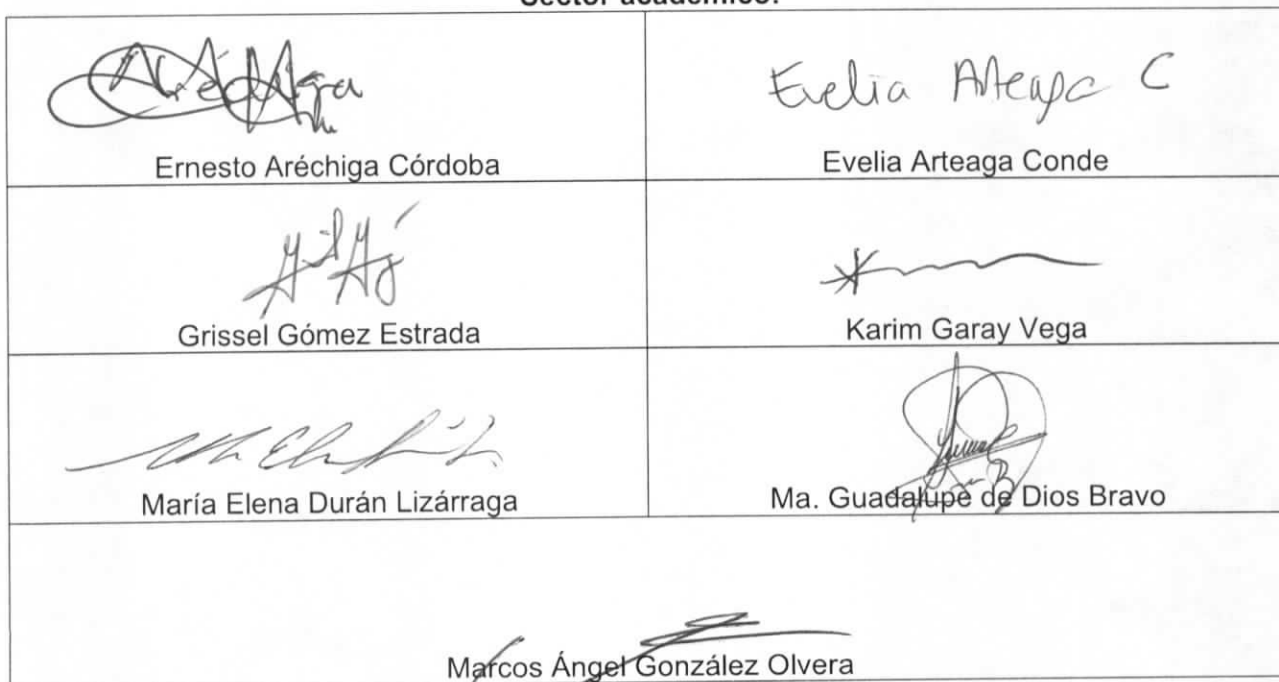 Sector académico:
Ernesto Aréchiga Córdoba
Evelia Arteaga C
Evelia Arteaga Conde
Grissel Gómez Estrada
Karim Garay Vega
María Elena Durán Lizárraga
Ma. Guadalupe de Dios Bravo
Marcos Ángel González Olvera